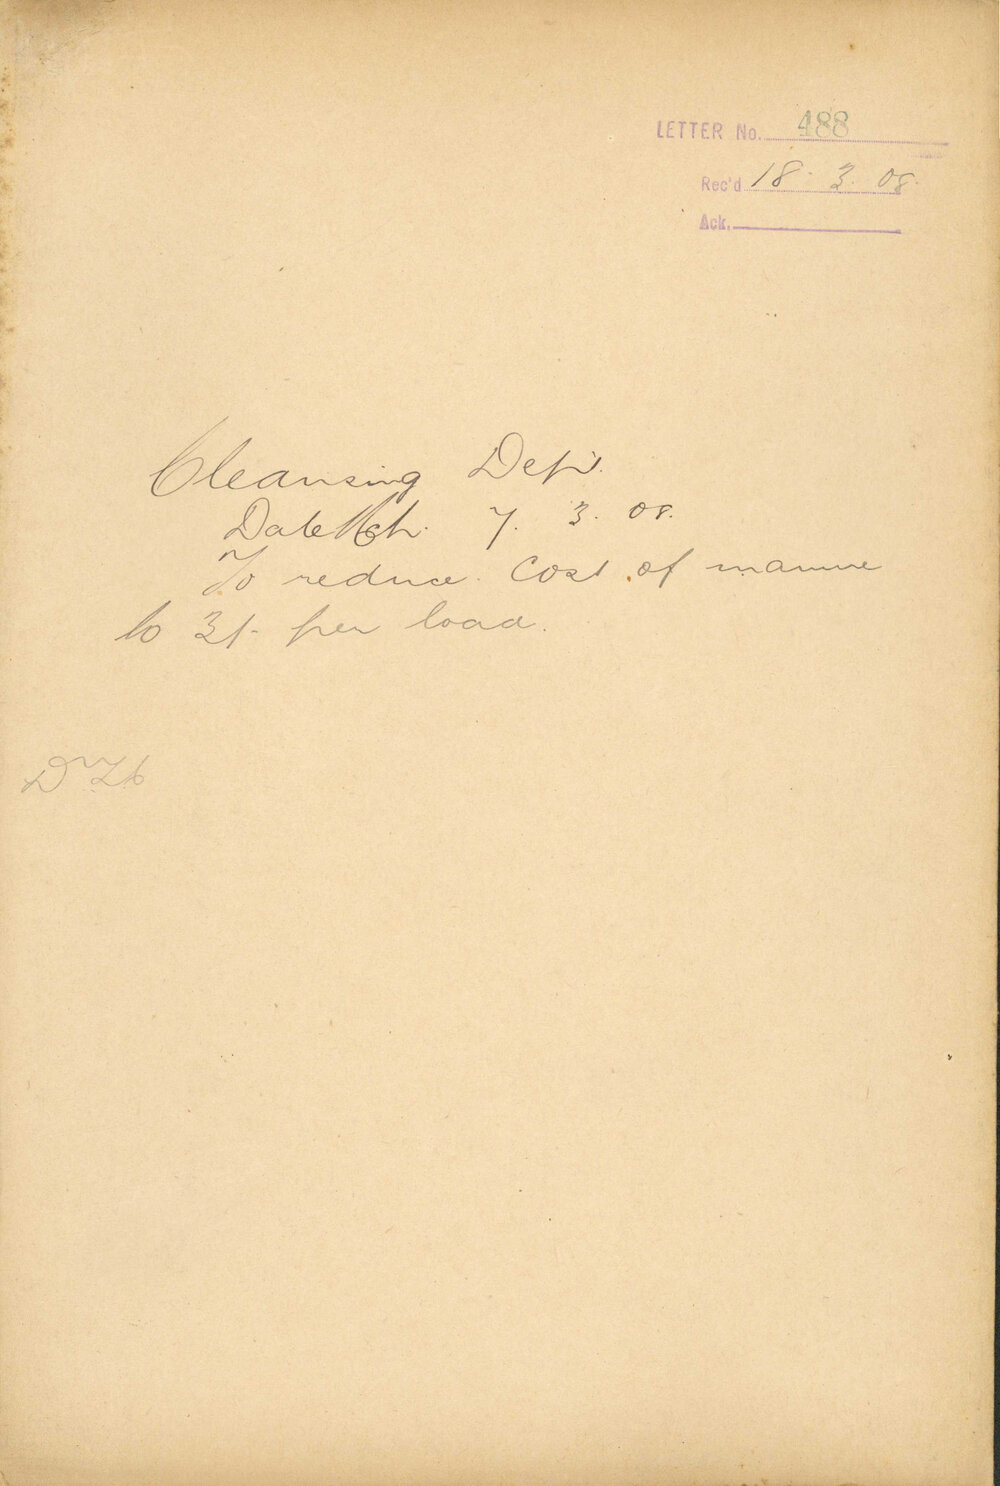 LETTER No. 488
Rec'd 18. 3. 08.
Ack.
Cleansing Dept.
Date 7. 3. 08.
To reduce cost of manure
to 3/- per load.